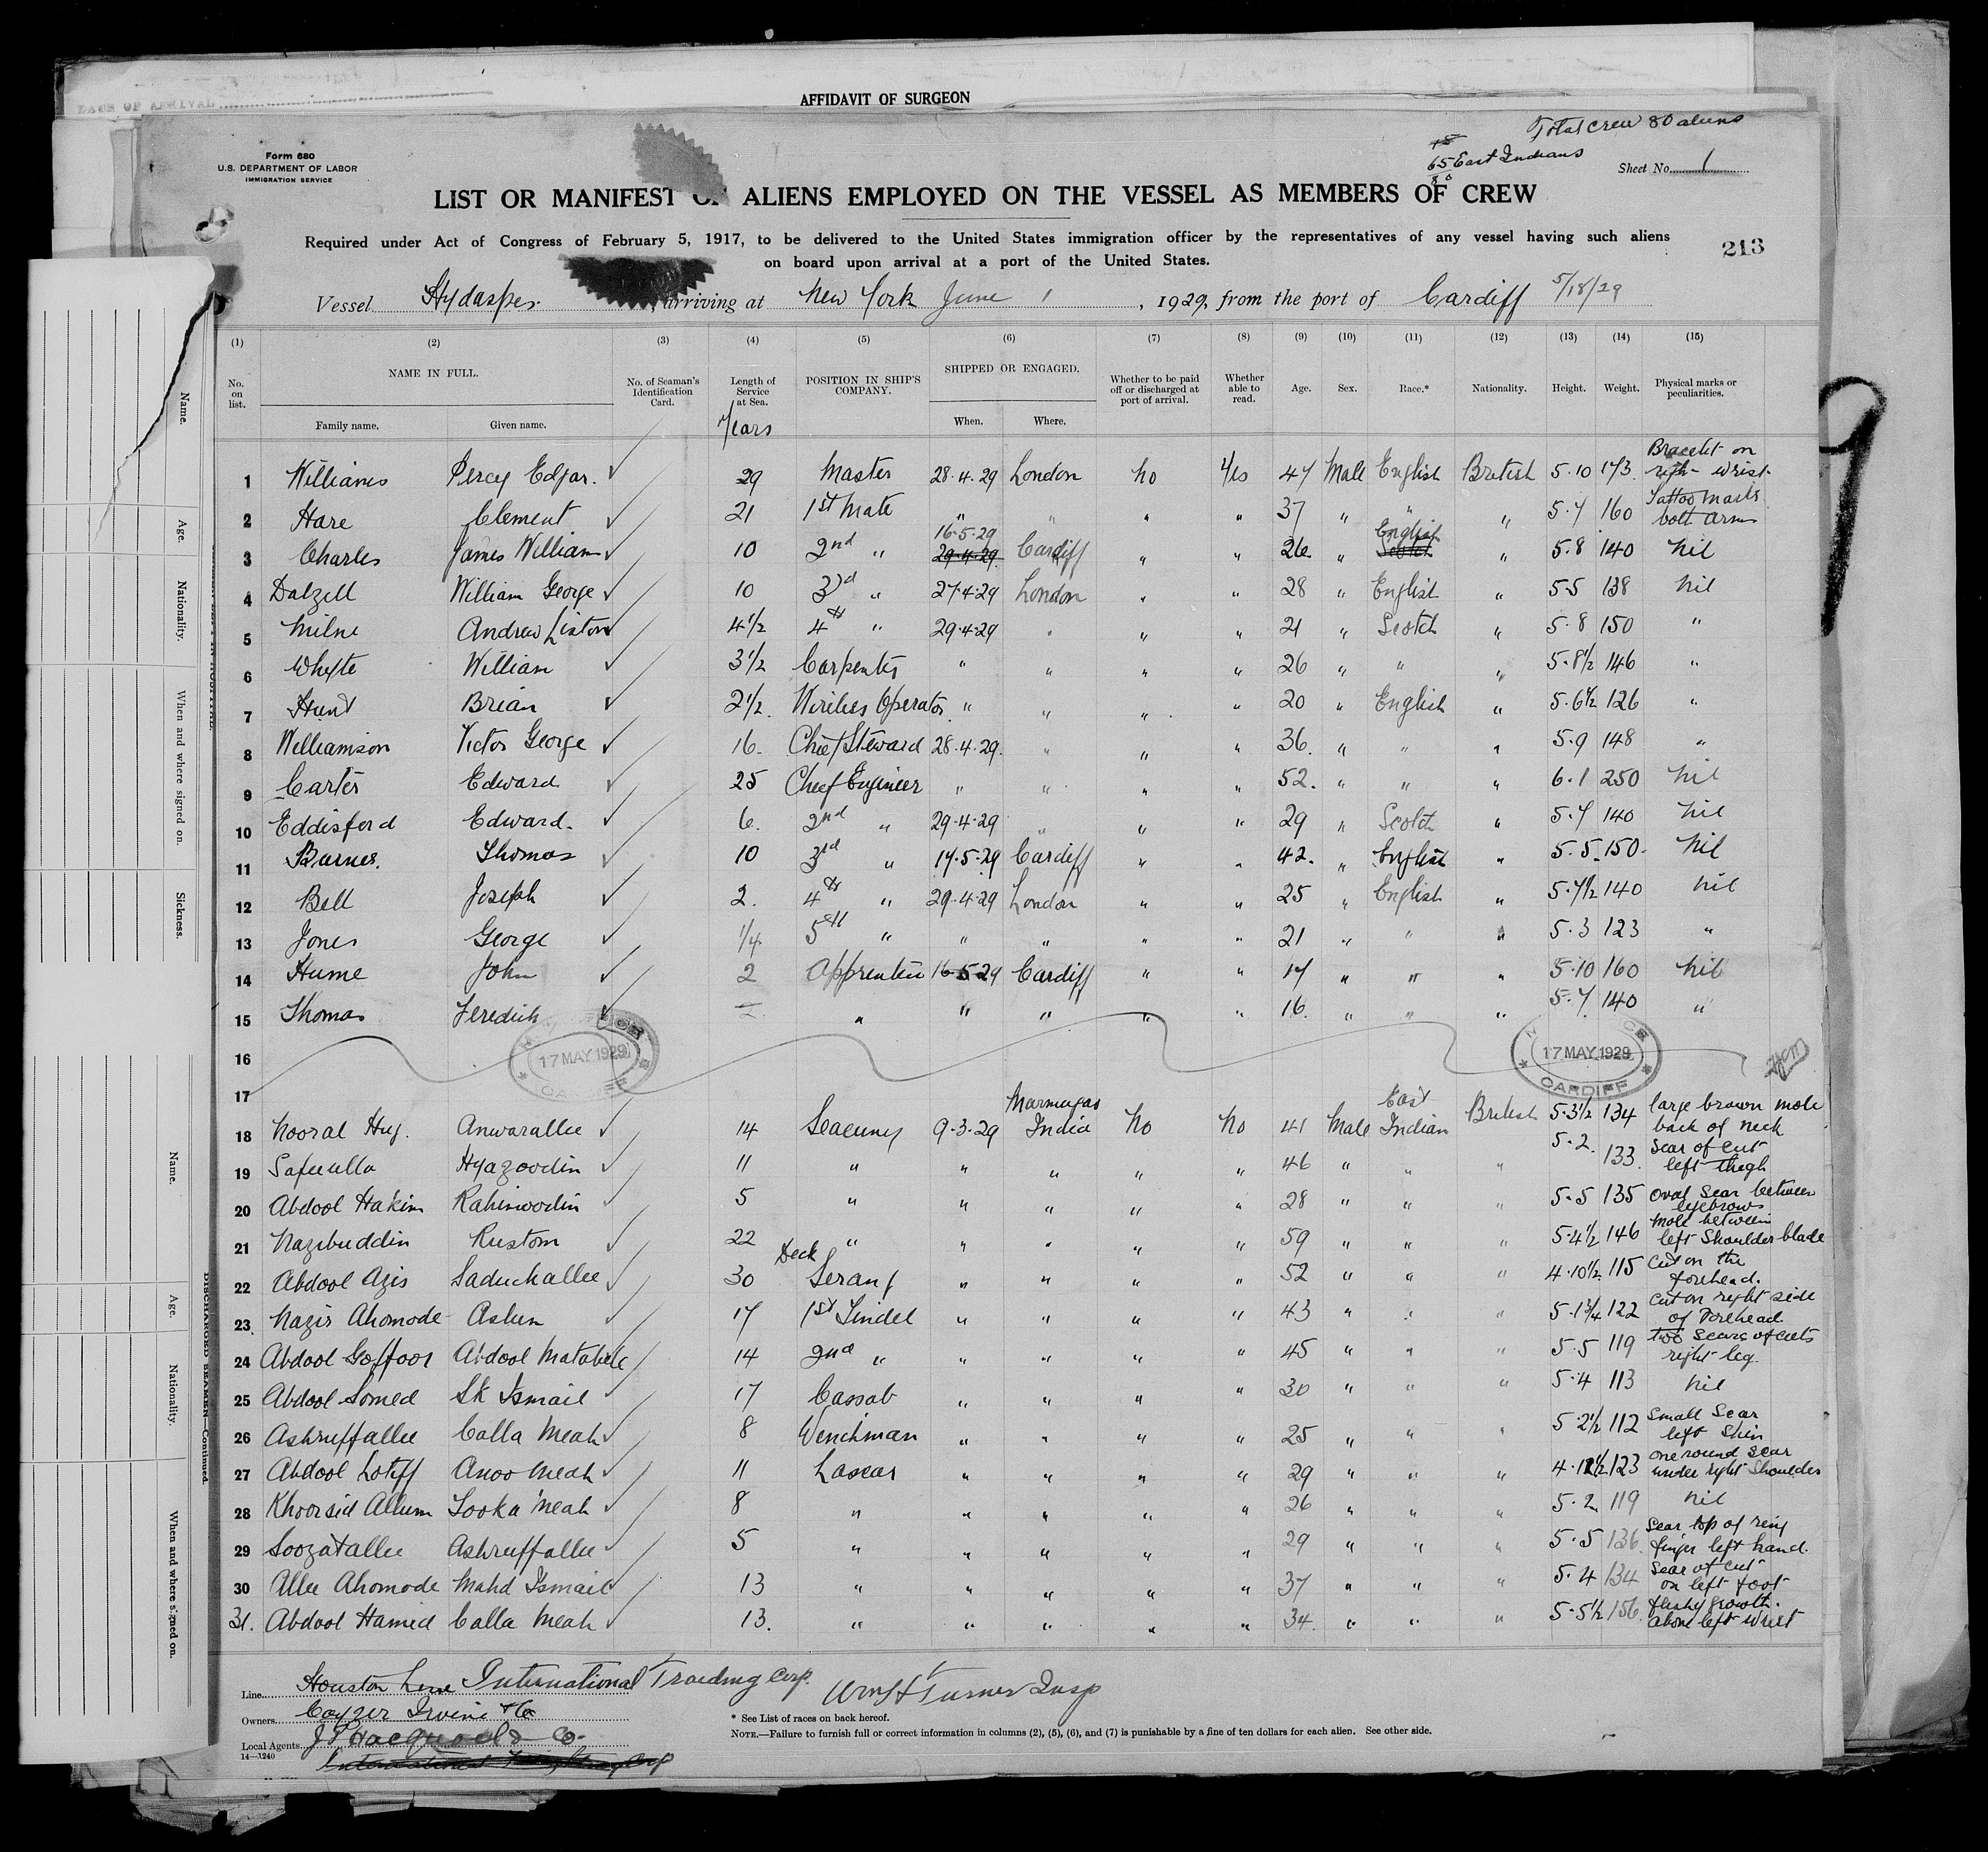 DATE OF ARRIVAL
AFFIDAVIT OF SURGEON
Total crew 80 aliens
15
65 East Indians
80
Form 680
U.S. DEPARTMENT OF LABOR
IMMIGRATION SERVICE
Sheet No. 1
LIST OR MANIFEST OF ALIENS EMPLOYED ON THE VESSEL AS MEMBERS OF CREW
Required under Act of Congress of February 5, 1917, to be delivered to the United States immigration officer by the representatives of any vessel having such aliens
on board upon arrival at a port of the United States.
213
Vessel Hydaspes, arriving at New York June 1, 1929, from the port of Cardiff 5/18/29
(1) (2) (3) (4) (5) (6) (7) (8) (9) (10) (11) (12) (13) (14) (15)
No. on list. NAME IN FULL. Family name. Given name. No. of Seaman's Identification Card. Length of Service at Sea. Years POSITION IN SHIP'S COMPANY. SHIPPED OR ENGAGED. When. Where. Whether to be paid off or discharged at port of arrival. Whether able to read. Age. Sex. Race.* Nationality. Height. Weight. Physical marks or peculiarities.
1 Williams Percy Edgar. ✓ 29 Master 28.4.29 London No Yes 47 Male English British 5.10 173. Bracelet on right wrist
2 Hare Clement ✓ 21 1st Mate " " " " 37 " " " 5.7 160 Tattoo marks both arms
3 Charles James William ✓ 10 2nd " 16.5.29 29.4.29 Cardiff " " 26 " English Scotch " 5.8 140 Nil
4 Dalzell William George ✓ 10 3rd " 27.4.29 London " " 28 " English " 5.5 138 Nil
5 Milne Andrew Liston ✓ 4½ 4th " 29.4.29 " " " 21 " Scotch " 5.8 150 "
6 Whyte William ✓ 3½ Carpenter " " " " 26 " " " 5.8½ 146 "
7 Hunt Brian ✓ 2½ Wireless Operator " " " " 20 " English " 5.6½ 126 "
8 Williamson Victor George ✓ 16. Chief Steward 28.4.29. " " " 36. " " " 5.9 148 "
9 Carter Edward ✓ 25 Chief Engineer " " " " 52. " " " 6.1 250 Nil
10 Eddisford Edward. ✓ 6. 2nd " 29.4.29 " " " 29 " Scotch " 5.7 140 Nil
11 Barnes. Thomas ✓ 10 3rd " 17.5.29 Cardiff " " 42. " English " 5.5 150. Nil
12 Bell Joseph ✓ 2. 4th " 29.4.29 London " " 25 " English " 5.7½ 140 Nil
13 Jones George ✓ ¼ 5th " " " " " 21 " " " 5.3 123 "
14 Hume John ✓ 2 Apprentice 16.5.29 Cardiff " " 17 " " " 5.10 160 Nil
15 Thomas Feredich ✓ " " " " " 16. " " " 5.7 140 "
16
17 MAY 1929 CARDIFF
17 MAY 1929 CARDIFF
17
18 Nooral Huq. Anwarallee ✓ 14 Seacunny 9.3.29 Marmugao India No No 41 Male East Indian British 5.3½ 134 large brown mole back of neck
19 Safeulla Hyazoodin ✓ 11 " " " " " 46 " " " 5.2. 133. Scar of cut left thigh
20 Abdool Hakim Rahimoodin ✓ 5 " " " " " 28 " " " 5.5 135 Oval Scar between eyebrows
21 Nazibuddin Rustom ✓ 22 " " " " " 59 " " " 5.4½ 146 Mole between left Shoulder blade
22 Abdool Azis Saduckallee ✓ 30 Deck Serang " " " " 52 " " " 4.10½ 115 Cut on the forehead.
23. Nazir Ahomode Aslum ✓ 17 1st Tindel " " " " 43 " " " 5.1¾ 122 Cut on right side of Forehead
24 Abdool Goffoor Abdool Matabele ✓ 14 2nd " " " " " 45 " " " 5.5 119 two Scars of cuts right leg.
25 Abdool Somed Sk Ismail ✓ 17 Cassab " " " " 30 " " " 5.4 113 Nil
26 Ashruffallee Calla Meah ✓ 8 Winchman " " " " 25 " " " 5.2½ 112 Small Scar left Shin
27 Abdool Lotiff Anoo Meah ✓ 11 Lascar " " " " 29 " " " 4.11½ 123 one round scar under right Shoulder
28 Khoorsid Allum Tooka Meah ✓ 8 " " " " " 26 " " " 5.2 119 Nil
29 Soozatallee Ashruffallee ✓ 5 " " " " " 29 " " " 5.5 136. Scar top of ring finger left hand.
30 Allee Ahomode Mahd Ismail ✓ 13 " " " " " 37 " " " 5.4 134 Scar of cut on left foot
31. Abdool Hamed Calla Meah ✓ 13. " " " " " 34. " " " 5.5½ 156. fleshy growth above left wrist
Line Houston Line International Trading Corp.
Wm H Turner Insp
Owners Cayzer Irvine & Co
* See List of races on back hereof.
Local Agents
NOTE.—Failure to furnish full or correct information in columns (2), (5), (6), and (7) is punishable by a fine of ten dollars for each alien. See other side.
14—1240
Name. Age. Nationality. When and where signed on. Sickness.
Name. Age. Nationality. When and where signed on.
DISCHARGED SEAMEN—Continued